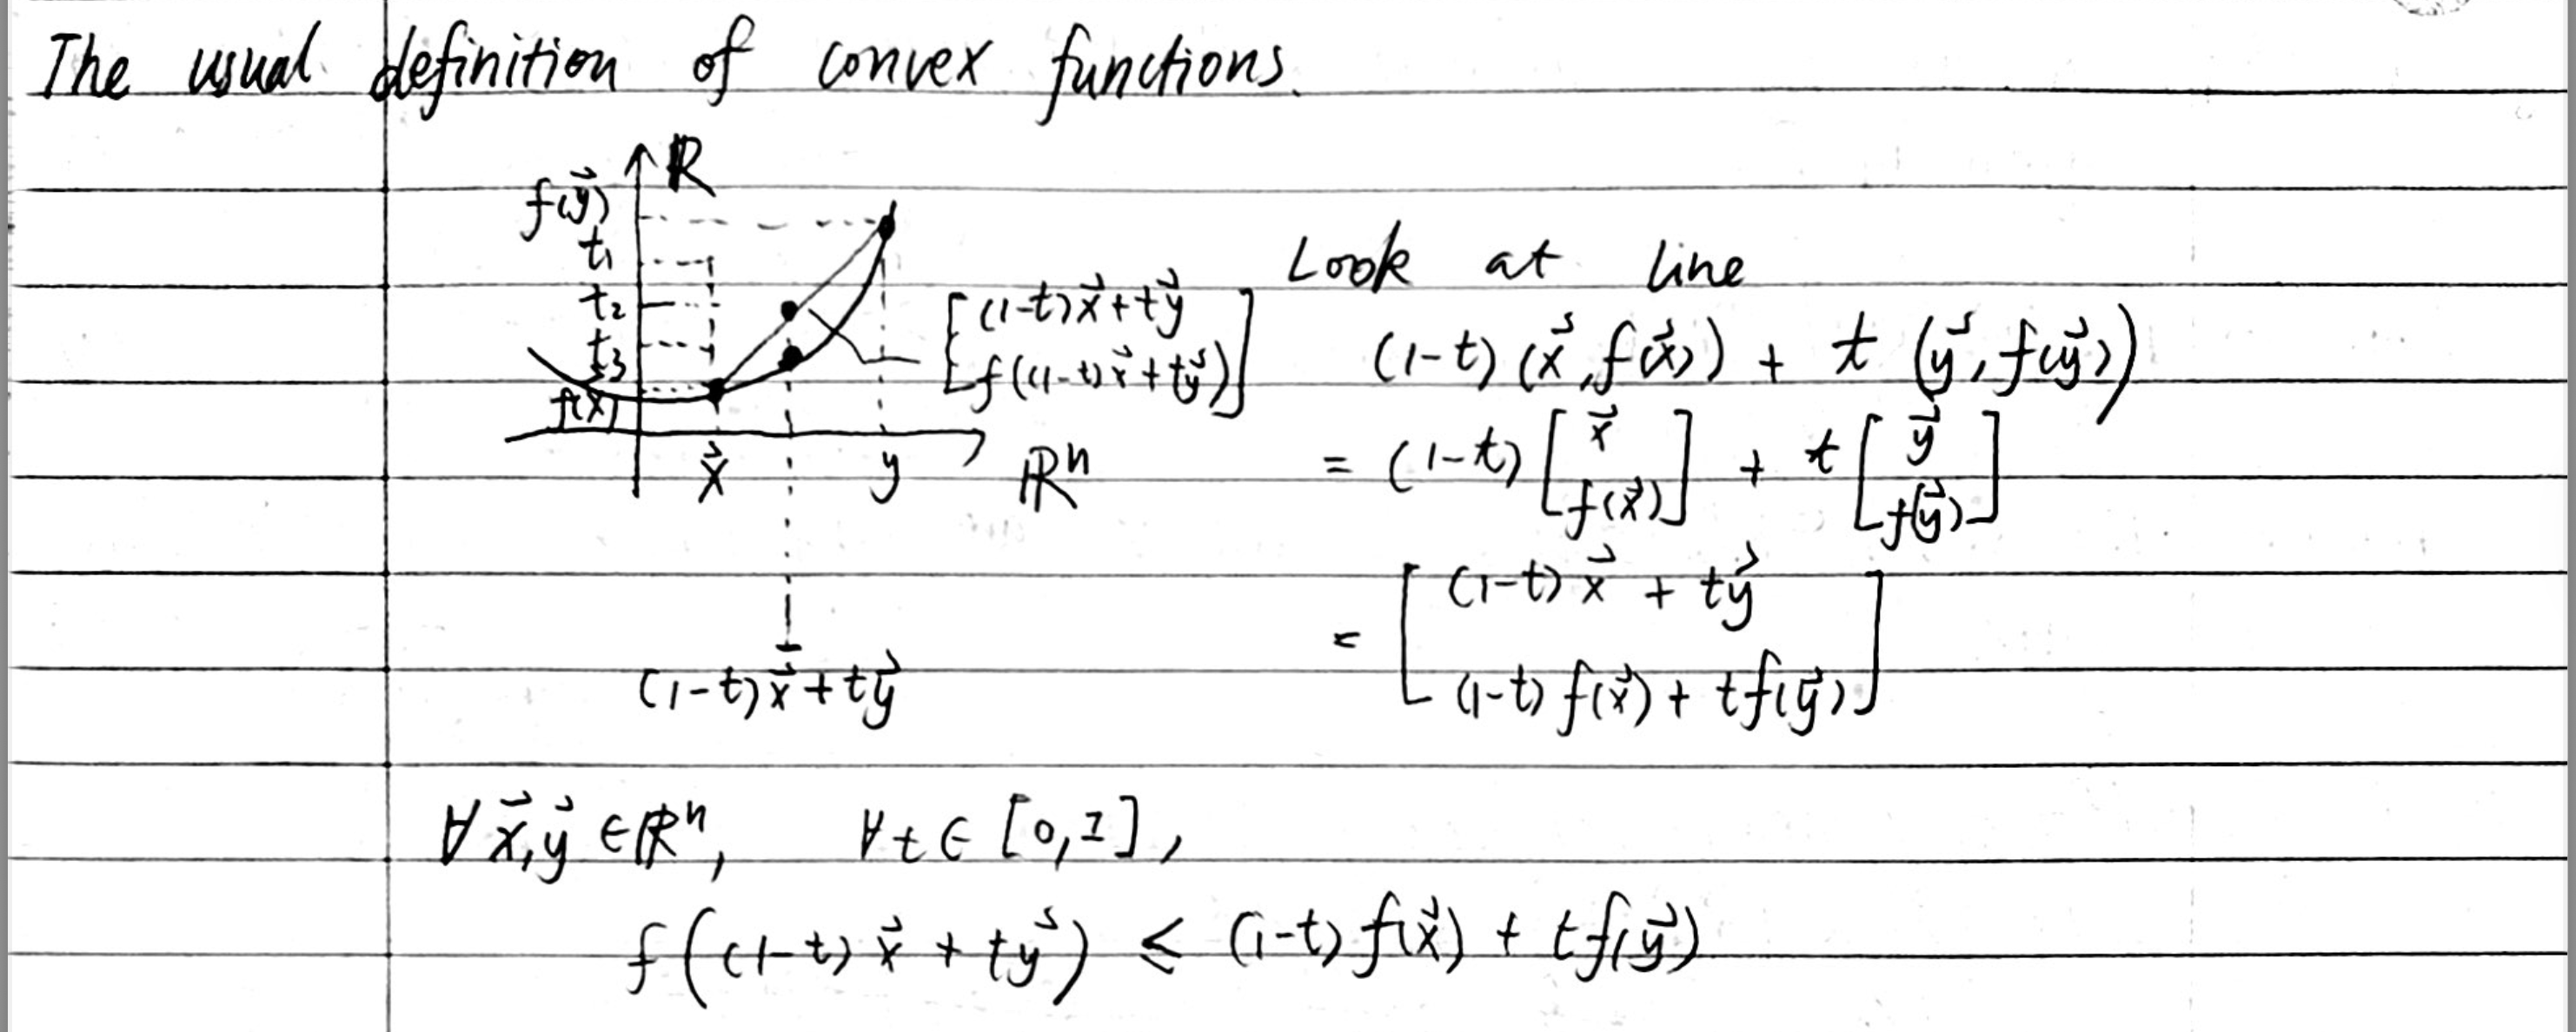 The usual definition of convex functions.
ℝ
f(y⃗)
t₁
t₂
t₃
f(x)
x⃗
y
ℝⁿ
[(1-t)x⃗+ty⃗
f((1-t)x⃗+ty⃗)]
(1-t)x⃗+ty⃗
Look at line
(1-t) (x⃗, f(x⃗)) + t (y⃗, f(y⃗))
= (1-t) [x⃗ f(x⃗)] + t [y⃗ f(y⃗)]
= [(1-t) x⃗ + ty⃗
(1-t) f(x⃗) + t f(y⃗)]
∀ x⃗, y⃗ ∈ ℝⁿ, ∀ t ∈ [0,1],
f((1-t) x⃗ + ty⃗) ≤ (1-t) f(x⃗) + t f(y⃗)